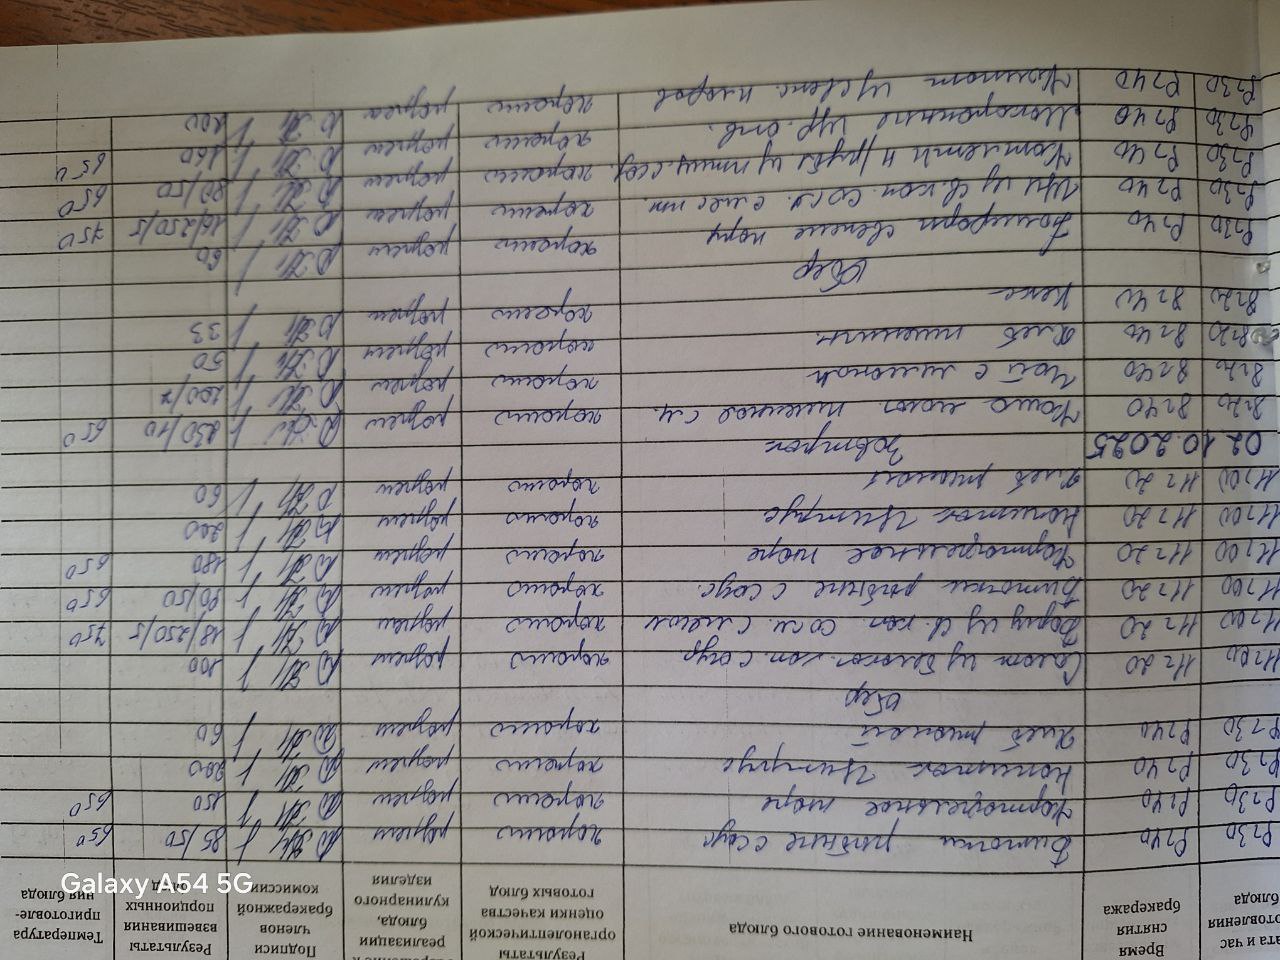 ата и час
отовления
блюда
Время
снятия
бракеража
Наименование готового блюда
Результаты
органолептической
оценки качества
готовых блюд
реализации
блюда,
кулинарного
изделия
Подписи
членов
бракеражной
комиссии
Результаты
взвешивания
порционных
блюд
Температура
приготовле-
ния блюда
9ч30 9ч40 Биточки рыбные с соус. хорошо разреш 85/50 65°
9ч30 9ч40 Картофельное пюре хорошо разреш 150 65°
9ч30 9ч40 Напиток Цитрус хорошо разреш 200
9ч30 9ч40 Хлеб ржаной хорошо разреш 60
Обед
11ч00 11ч20 Салат из белокоч. кап. с огур хорошо разреш 100
11ч00 11ч20 Борщ из св. кап. со см. с мясом хорошо разреш 18/250/5 75°
11ч00 11ч20 Биточки рыбные с соус. хорошо разреш 90/50 65°
11ч00 11ч20 Картофельное пюре хорошо разреш 180 65°
11ч00 11ч20 Напиток Цитрус хорошо разреш 200
11ч00 11ч20 Хлеб ржаной хорошо разреш 60
02.10.2025 Завтрак
8ч20 8ч40 Каша молоч. пшенная с м. хорошо разреш 230/10 65°
8ч20 8ч40 Чай с лимоном хорошо разреш 200/7
8ч20 8ч40 Хлеб пшеничн. хорошо разреш 50
8ч20 8ч40 Кекс хорошо разреш 33
Обед
9ч30 9ч40 Помидоры свежие порц хорошо разреш 60
9ч30 9ч40 Щи из св. кап. со см. с мясом. хорошо разреш 16/250/5 75°
9ч30 9ч40 Котлеты н/рубл из птицы с соус. хорошо разреш 80/50 65°
9ч30 9ч40 Макаронные изд. отв. хорошо разреш 160 65°
9ч30 9ч40 Напиток из свеж. плодов хорошо разреш 200
Galaxy A54 5G